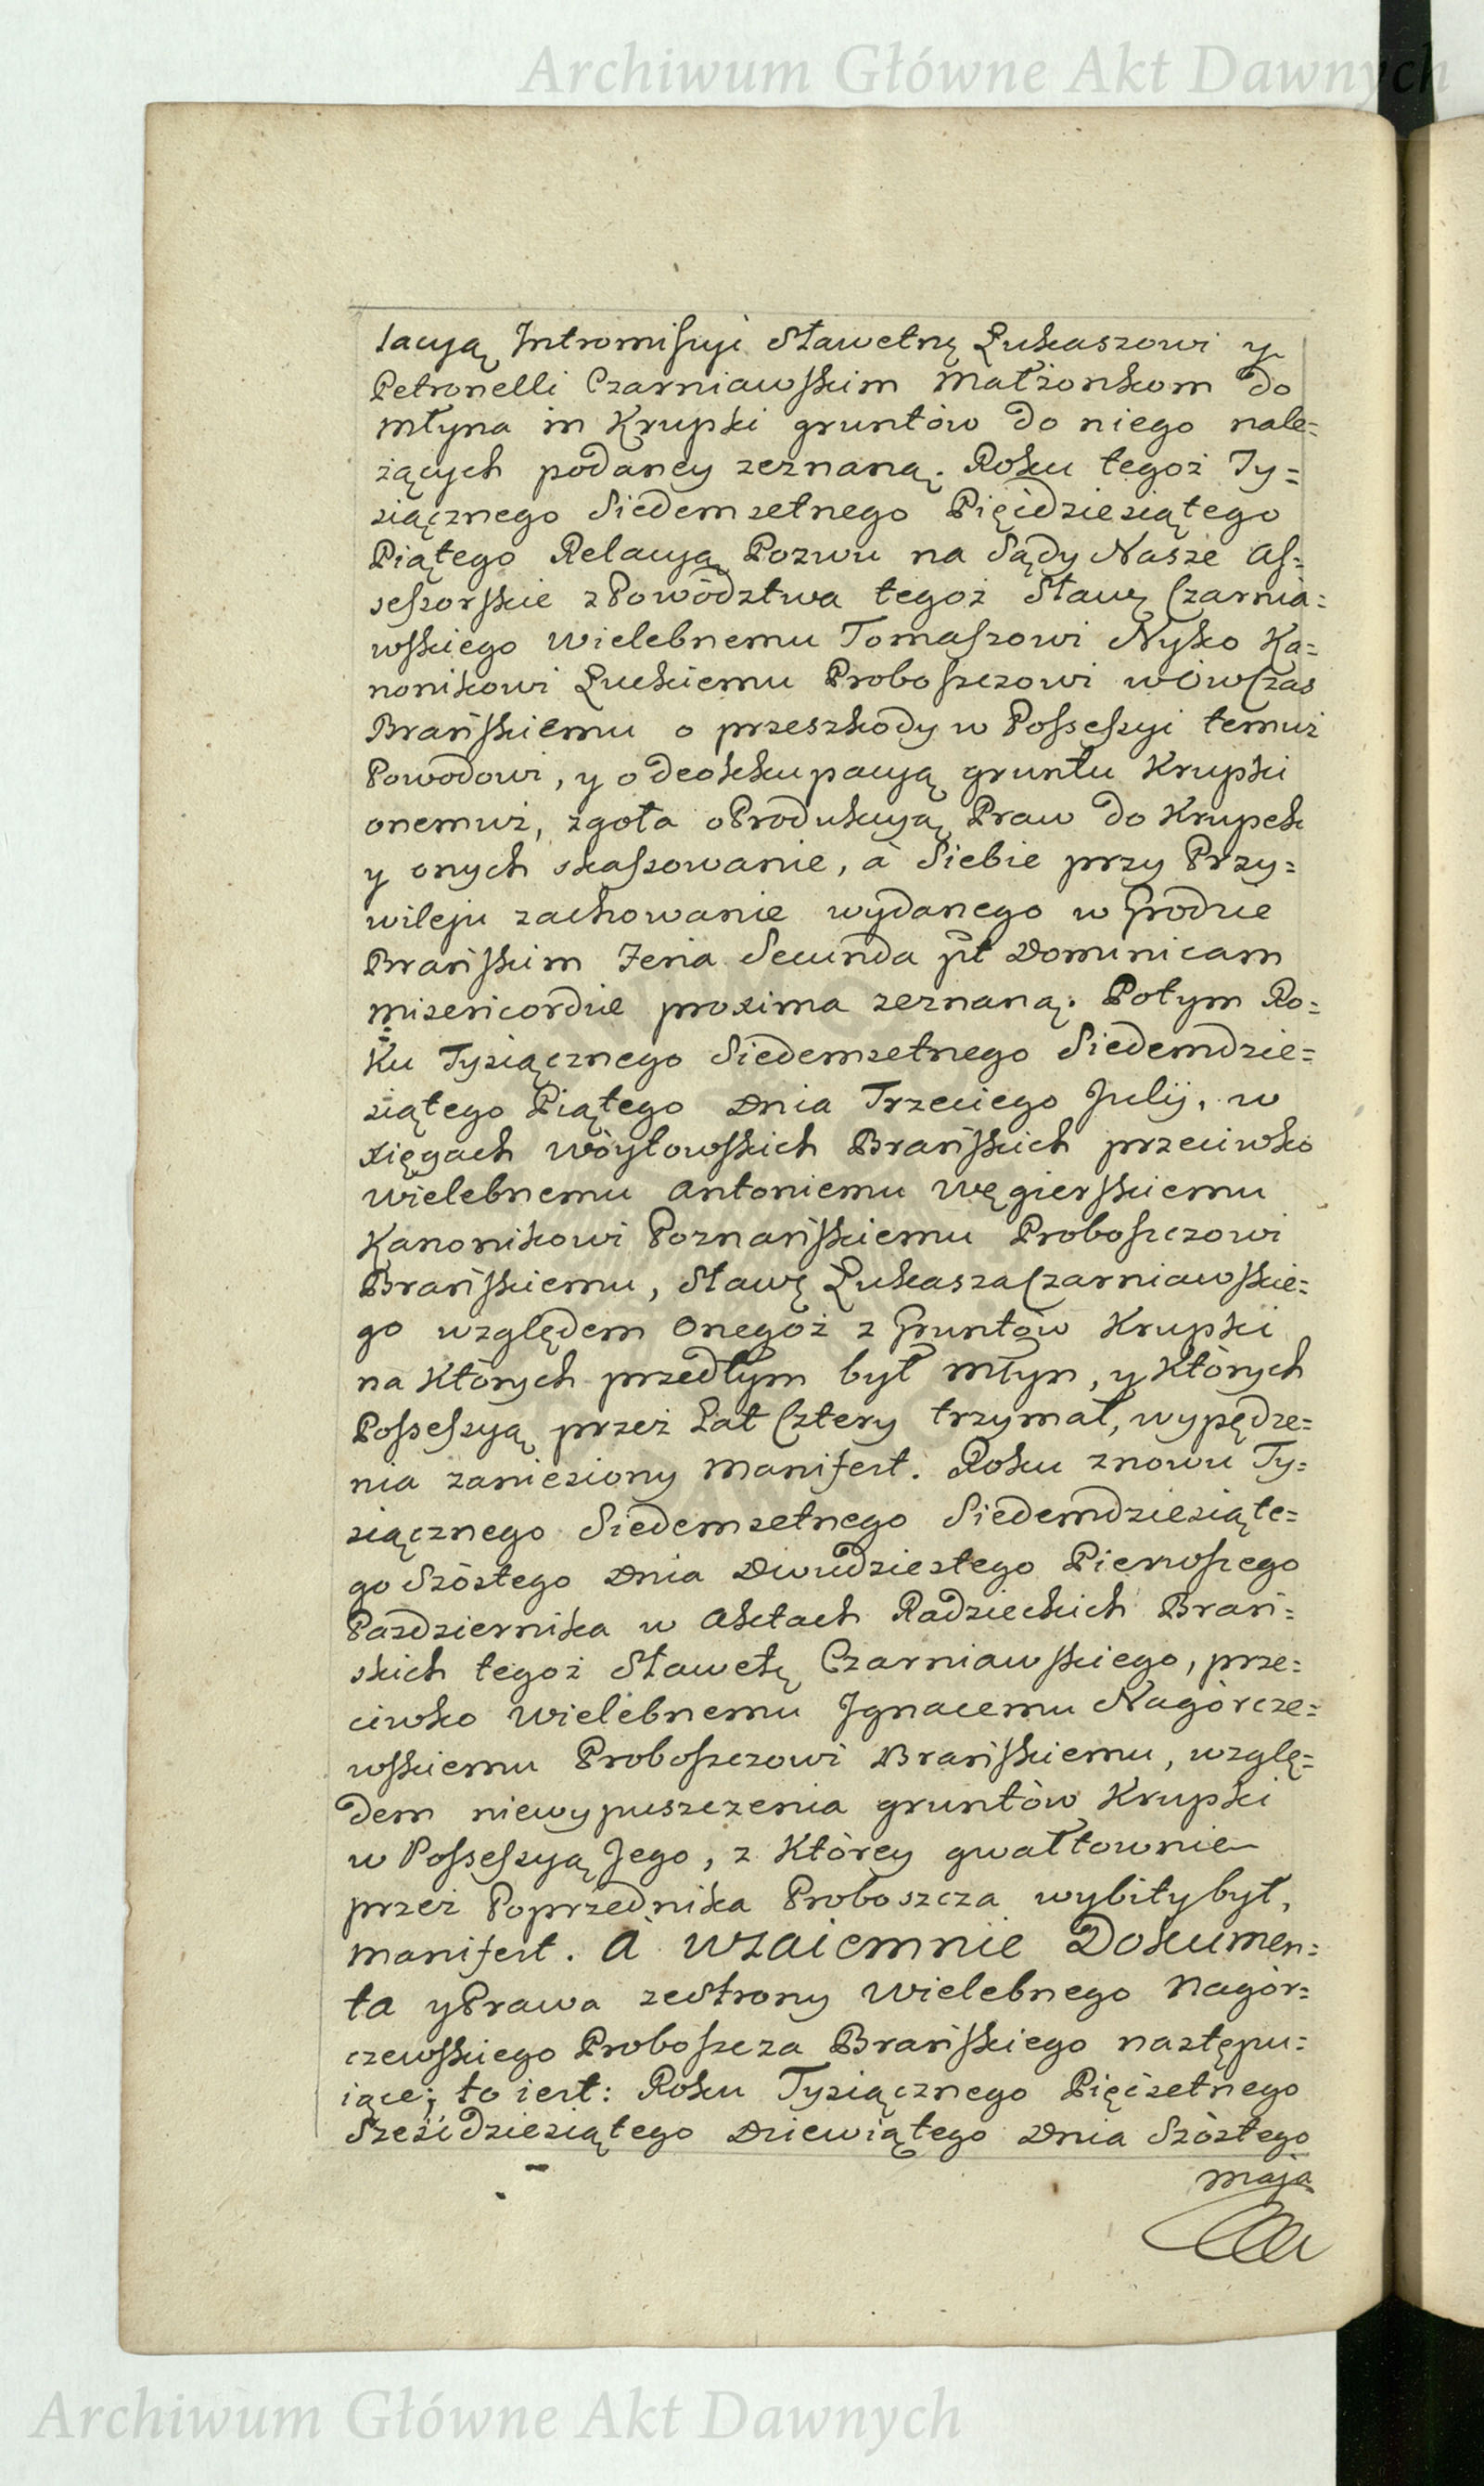 Archiwum Główne Akt Dawnych
lacyą Intromissyi Sławetnę Łukaszowi y
Petronelli Czarniawskim Małżonkom do
Młyna in Krupki gruntów do niego nale=
żących podaney zeznaną. Roku tegoż Ty=
siącznego Siedemsetnego Pięćdziesiątego
Piątego Relacyą Pozwu na Sądy Nasze As=
sessorskie z Powództwa tegoż Sławę Czarnia=
wskiego Wielebnemu Tomaszowi Nyko Ka=
nonikowi Łuckiemu Proboszczowi wówczas
Brańskiemu o przeszkody w Possessyi temuż
Powodowi, y o deokkupacyą gruntu Krupki
onemuż, zgoła o Produkcyą Praw do Krupek
y onych skassowanie, à Siebie przy Przy=
wileju zachowanie wydanego w Grodzie
Brańskim Feria Secunda pt Dominicam
Misericordie proxima zeznaną. Potym Ro=
ku Tysiącznego Siedemsetnego Siedemdzie=
siątego Piątego Dnia Trzeciego Julij, w
xięgach Wóytowskich Brańskich przeciwko
Wielebnemu Antoniemu Węgierskiemu
Kanonikowi Poznańskiemu Proboszczowi
Brańskiemu, Sławę Łukasza Czarniawskie=
go względem Onegoż z Gruntów Krupki
na Których przedtym był Młyn, y Których
Possessyą przez Lat Cztery trzymał, wypędze=
nia zaniesiony Manifest. Roku znowu Ty=
siącznego Siedemsetnego Siedemdziesiąte=
go Szóstego Dnia Dwudziestego Pierwszego
Pazdziernika w Aktach Radzieckich Brań=
skich tegoż Sławetę Czarniawskiego, prze=
ciwko Wielebnemu Ignacemu Nagórcze=
wskiemu Proboszczowi Brańskiemu, wzglę=
dem niewypuszczenia gruntów Krupki
w Possessyą Jego, z Którey gwałtownie
przez Poprzednika Proboszcza wybity był,
Manifest. à wzaiemnie Dokumen=
ta y Prawa ze Strony Wielebnego Nagór=
czewskiego Proboszcza Brańskiego następu=
iące; to iest: Roku Tysiącznego Pięćsetnego
Sześćdziesiątego Dziewiątego Dnia Szóstego
maja
Archiwum Główne Akt Dawnych